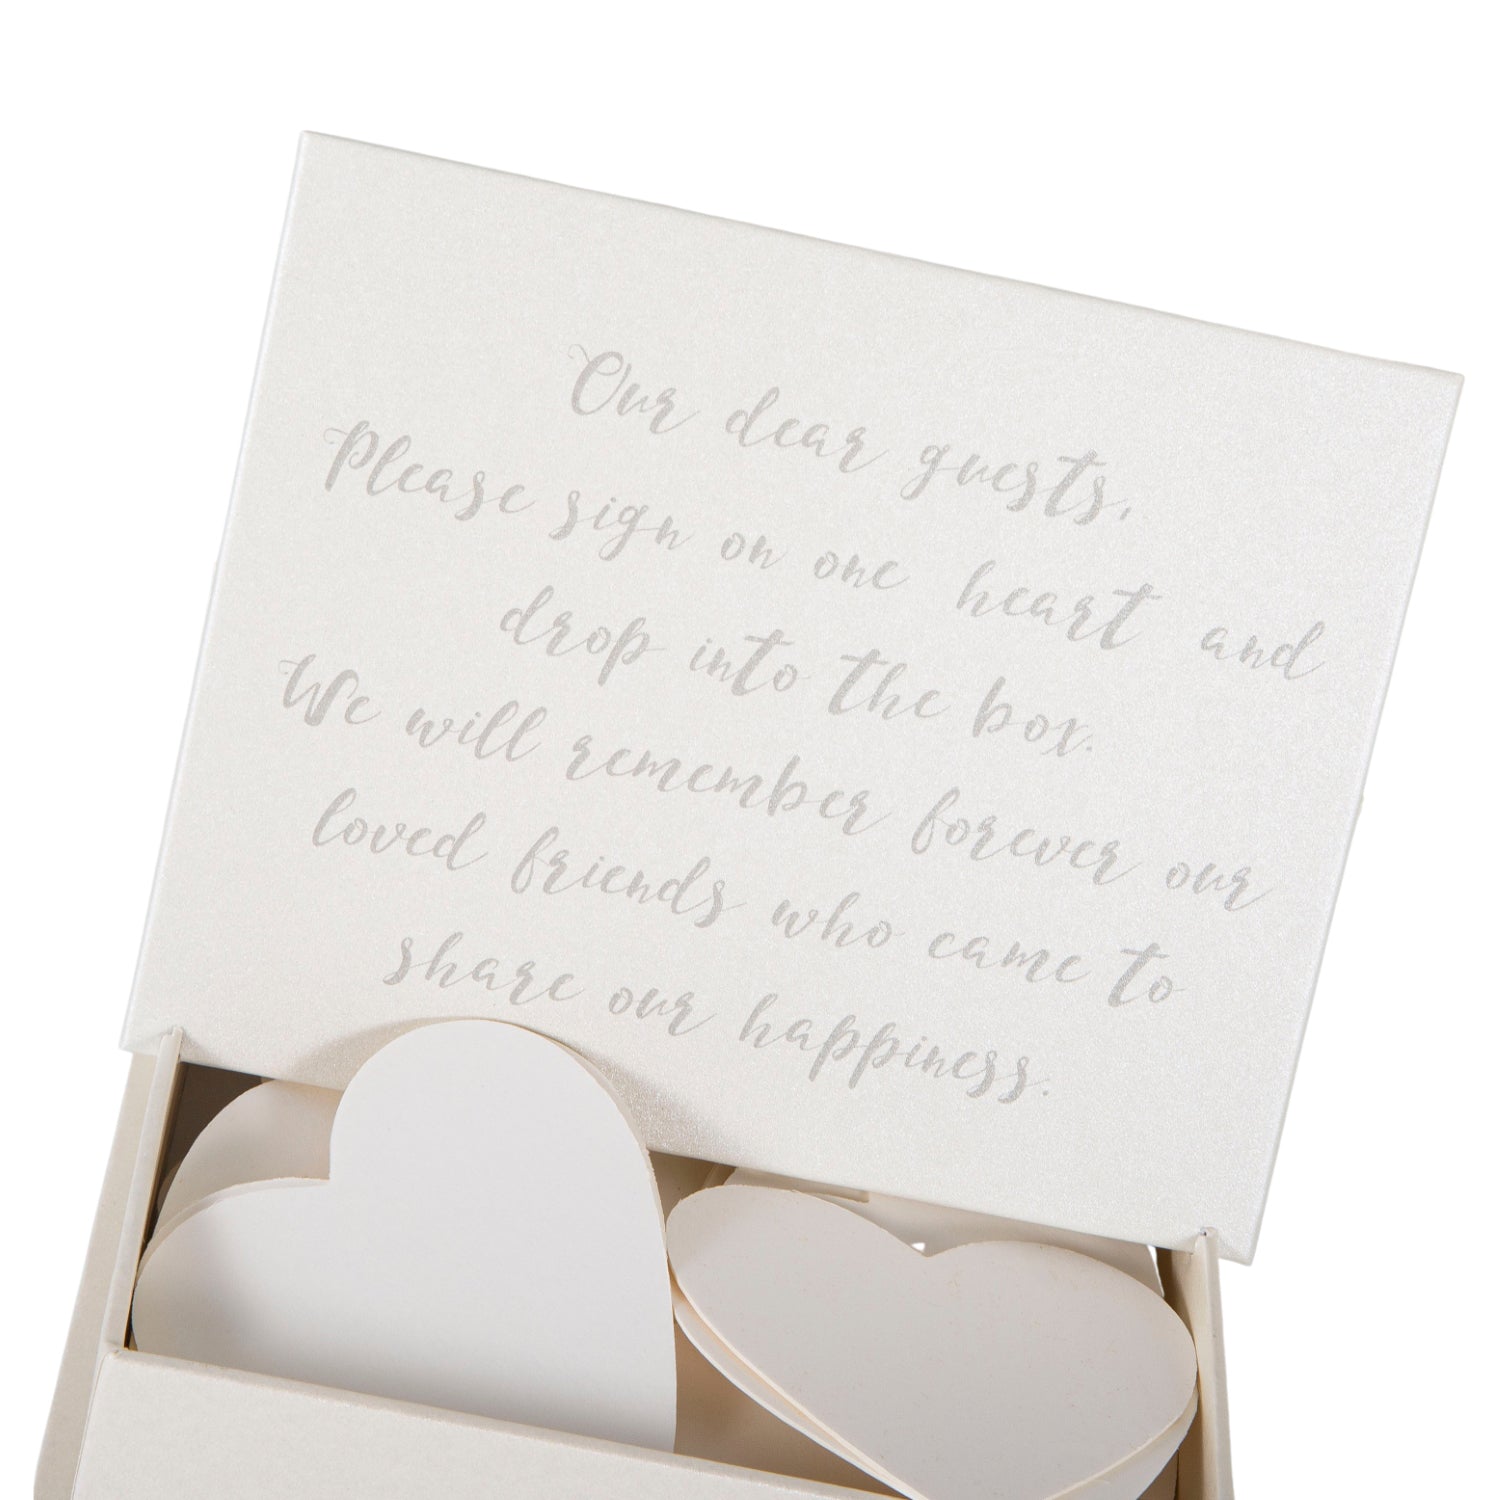 Our dear guests,
Please sign on one heart and
drop into the box.
We will remember forever our
loved friends who came to
share our happiness.